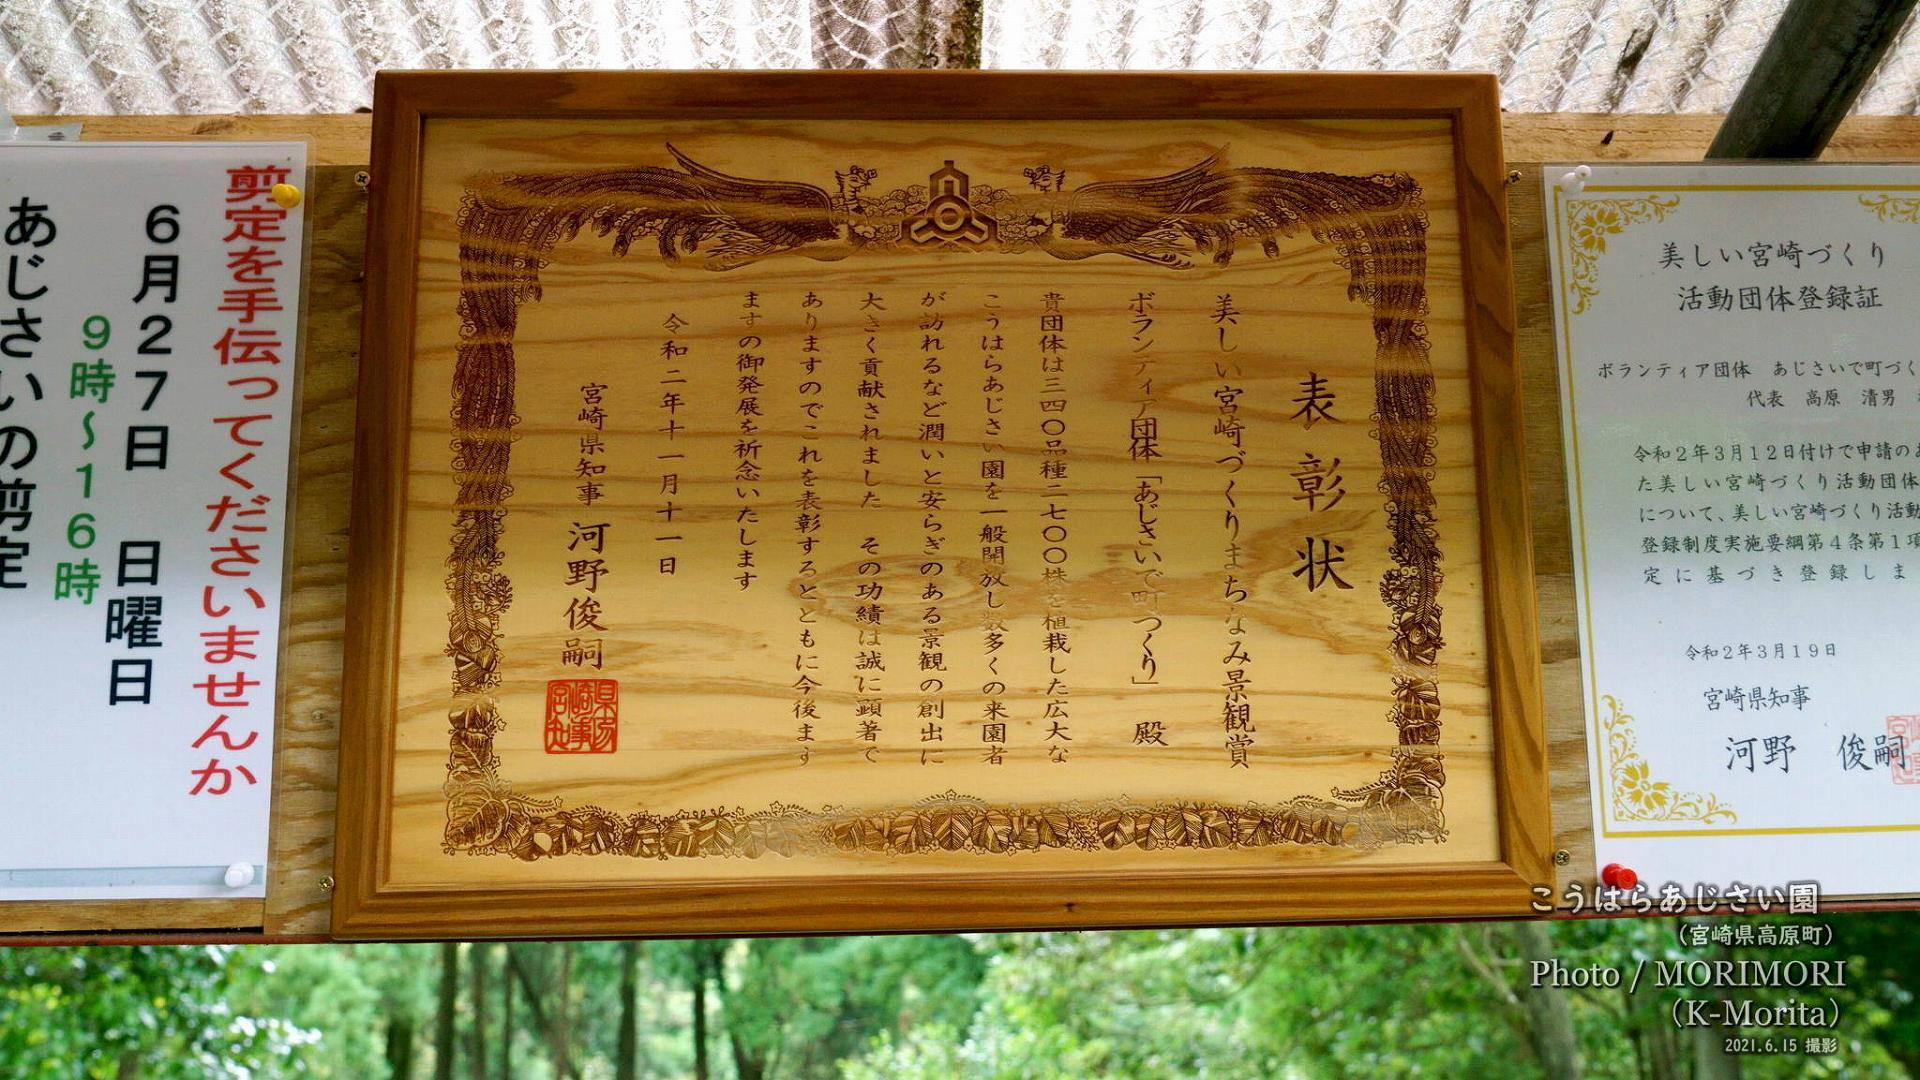 剪定を手伝ってくださいませんか
6月27日 日曜日
9時～16時
あじさいの剪定
表彰状
美しい宮崎づくりまちなみ景観賞
ボランティア団体「あじさいで町つくり」 殿
貴団体は三四〇品種二七〇〇株を植栽した広大な
こうはらあじさい園を一般開放し数多くの来園者
が訪れるなど潤いと安らぎのある景観の創出に
大きく貢献されました その功績は誠に顕著で
ありますのでこれを表彰するとともに今後ます
ますの御発展を祈念いたします
令和二年十一月十一日
宮崎県知事 河野俊嗣
美しい宮崎づくり
活動団体登録証
ボランティア団体 あじさいで町づく
代表 高原 清男
令和2年3月12日付けで申請のあ
た美しい宮崎づくり活動団体
について、美しい宮崎づくり活動
登録制度実施要綱第4条第1項
定に基づき登録しま
令和2年3月19日
宮崎県知事
河野 俊嗣
こうはらあじさい園
（宮崎県高原町）
Photo / MORIMORI
（K-Morita）
2021.6.15 撮影